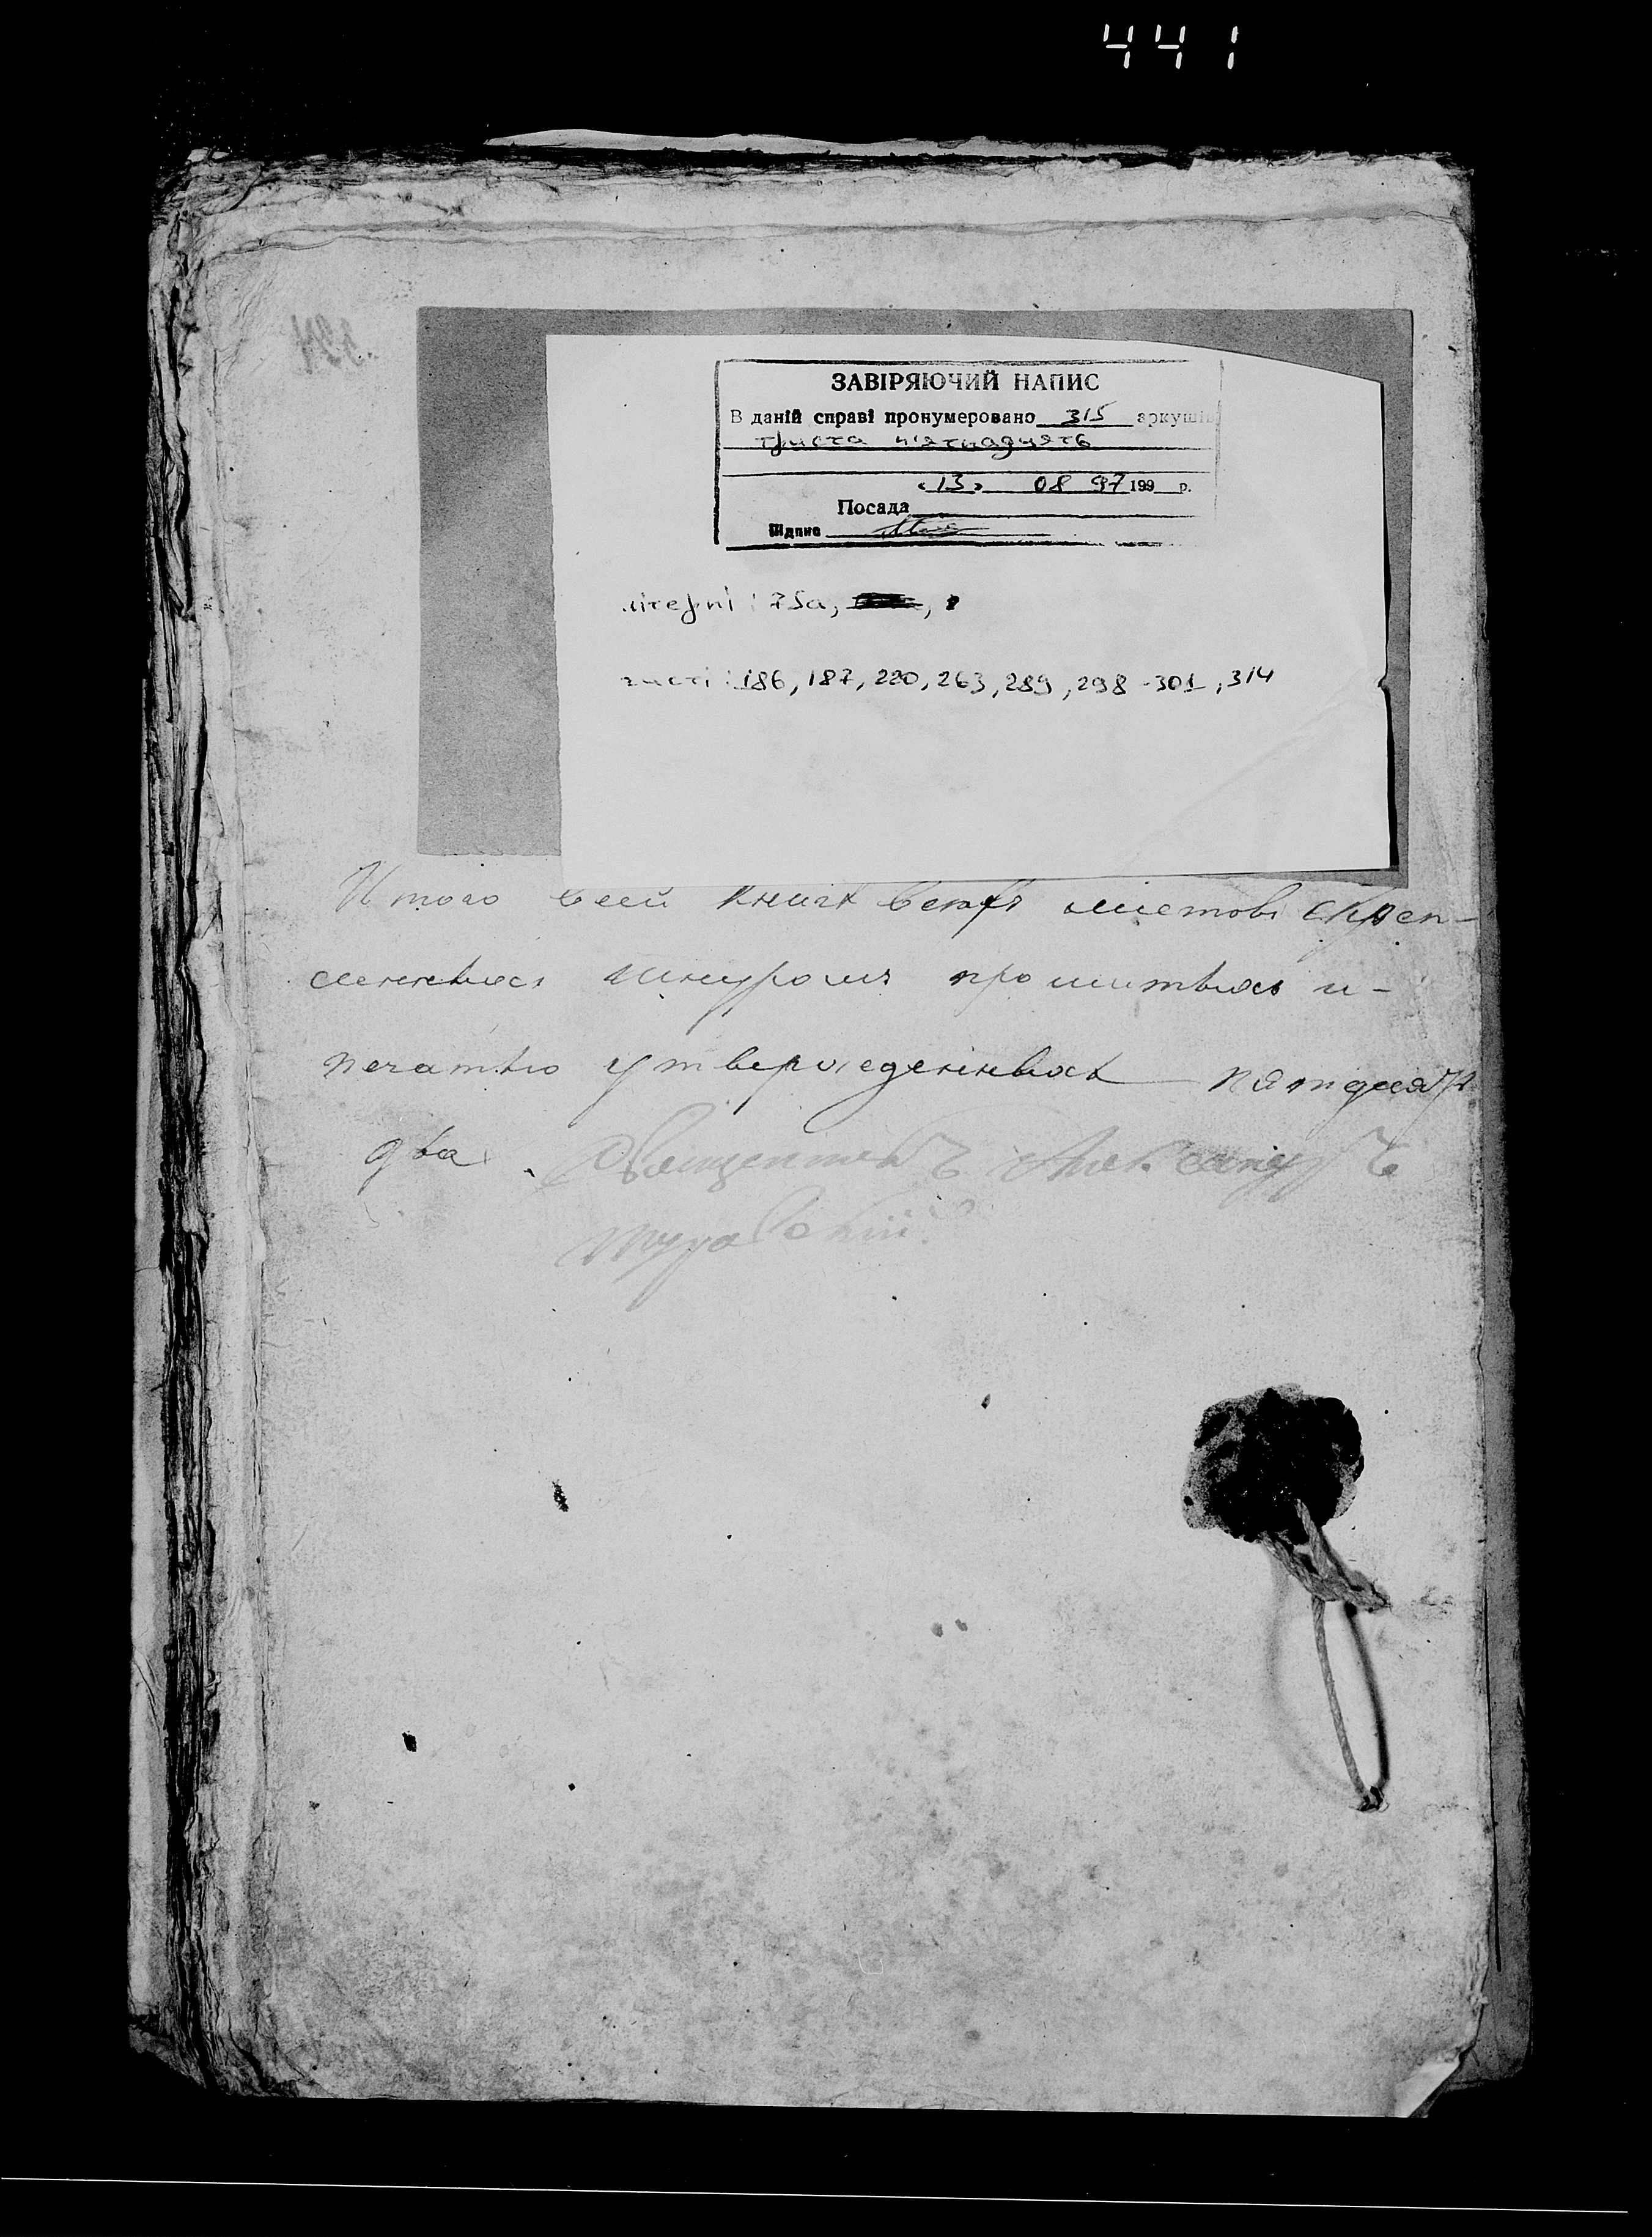 441
ЗАВІРЯЮЧИЙ НАПИС
В даній справі пронумеровано 315 аркушів
триста п'ятнадцять
«13» 08 97 199 р.
Посада
Підпис
літерні: 75а,
чисті: 186, 187, 220, 263, 289, 298-301, 314
Итого всей книгѣ всехъ листовъ скреп-
ленныхъ шнуромъ прошитыхъ и-
печатью утвержденныхъ пятдесятъ
два. Священникъ Александръ